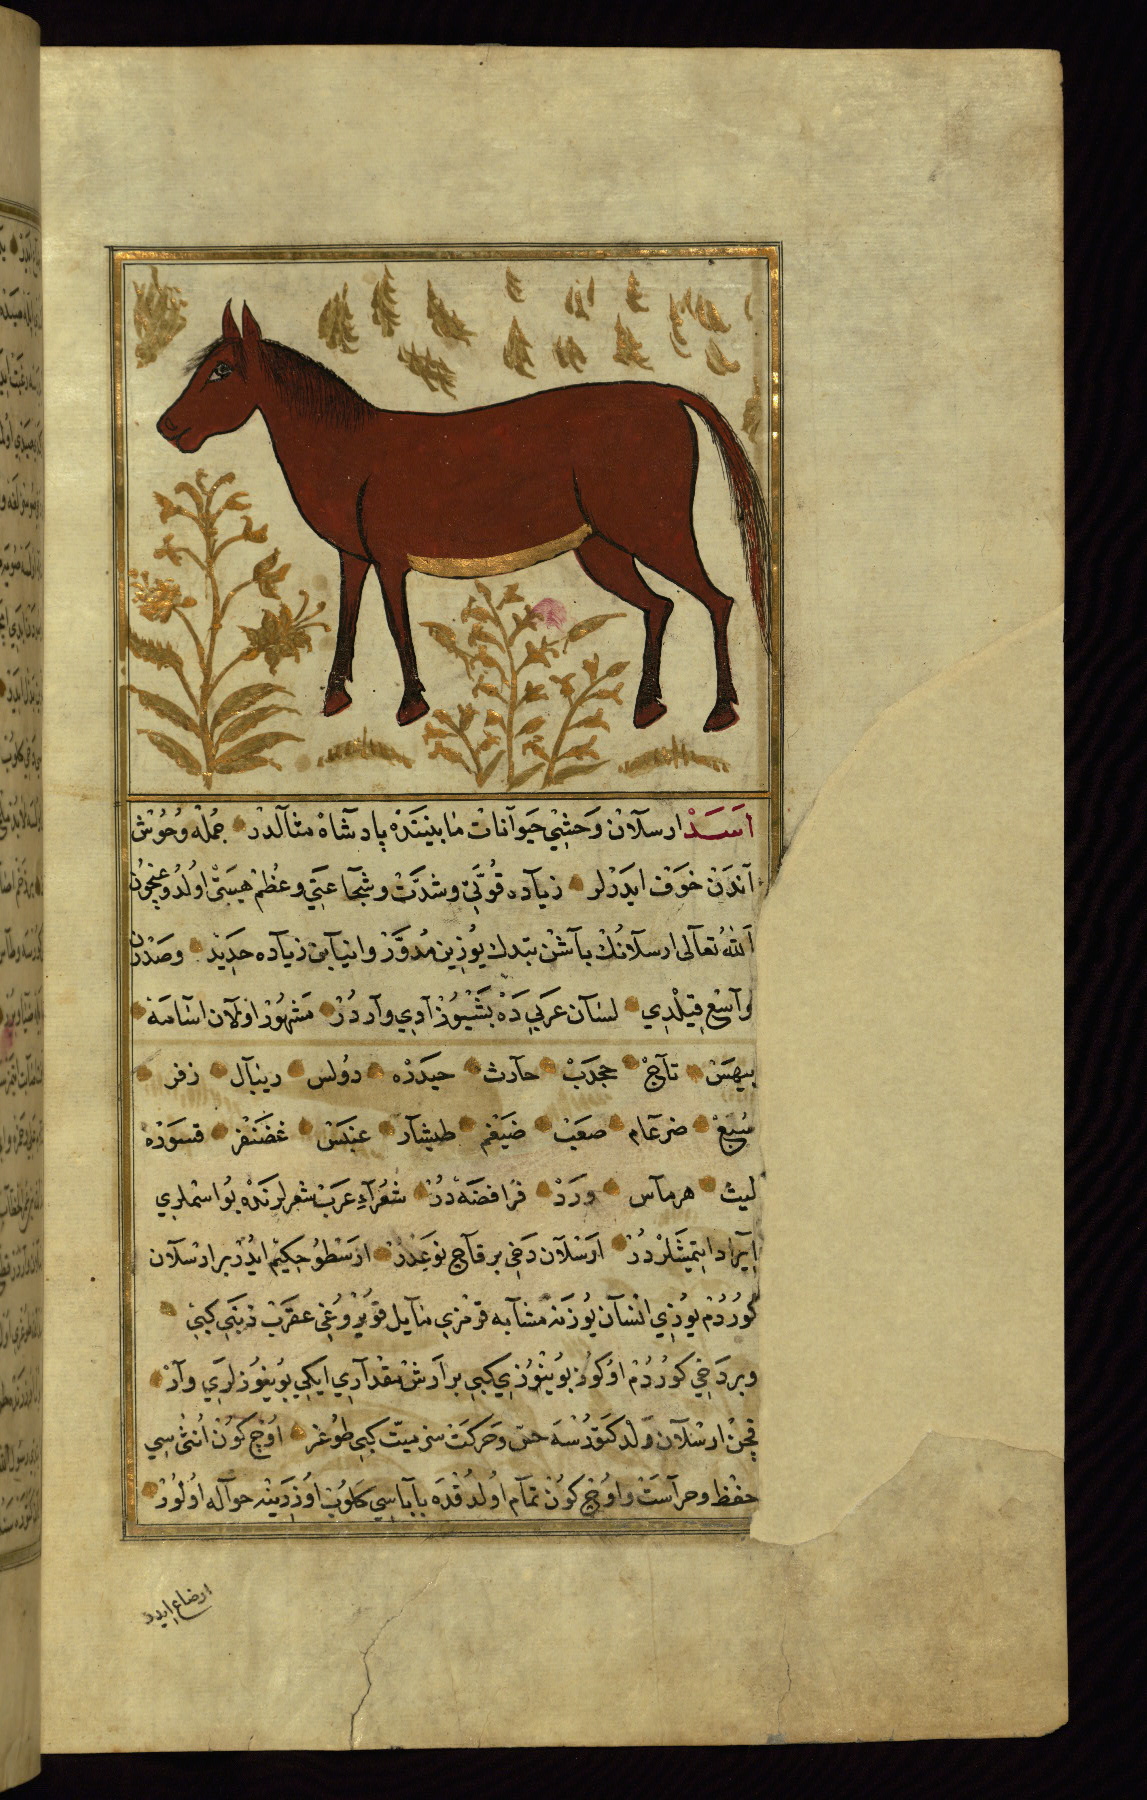 اَسَدْ ارسلان وَحشِي حَيوَانات مَا بَينِندَه پادشاه مثالدر جُمله وُحُوش
آندَن خَوف ايدَرلر زياده قُوَّتِي و شدَّت و شجاعَتي و عُظم هَيبَتي اولدوغيچون
اَللّٰه تعالى ارسلانُك باشن يُوزين مُدوَّر و انيابن زياده حديد و صَدْرن
واسع قيلدي لسان عربيده بَشيُوز آدي واردُر مَشهُور اولان اسامَه
بيهَس تاج جخدَبْ حارث حيدَره دُولس ريبال زفر
سَبعْ ضرغام صعَبْ ضَيغَم طيثار عنبَس غضَنفَر قسوَره
ليث هرماس ورَد فُرافضَه دُر شُعَرآءِ عرَب شعرلرنده بُو اسملري
ايراد ايتميشلردُر ارسلان دَخي بر قاچ نوعدُر ارَسطُو حكيم ايدُر بر ارسلان
كُوردُم يُوزي انسان يُوزنه مشابه قرمزي مايل قويروغي عقرَب ذنبي كبي
و بر دَخي كوردُم اوكُوز بُوينُوزي كبي بر ارَش مقداري ايكي بُوينُوزلري وار
قچن ارسلان وَلد كتورُسه حس و حركَت سز ميت كبي طوغر اوُچ كون انثىسي
حفظ و حراست و اوُچ كون تمام اولدقده باباسي كلوُب اوُزرينه حواله اولوُر
ارضاع ايدر